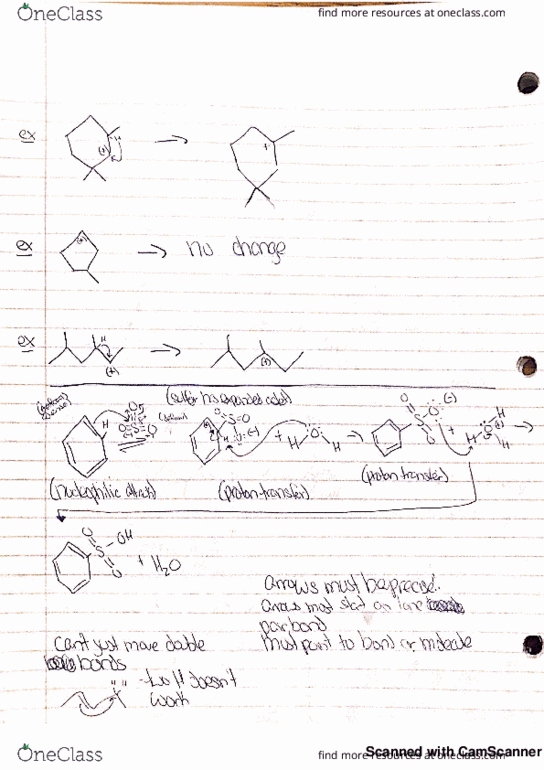 OneClass
find more resources at oneclass.com
ex
ex
no change
ex
(sulfur has expanded octet)
(nucleophilic attack)
(proton transfer)
(proton transfer)
+ H2O
arrows must be precise.
arrows must start on lone
pair bond
must point to bond or molecule
can't just move double
bonds
doesn't
work
OneClass
find more resources at oneclass.com
Scanned with CamScanner